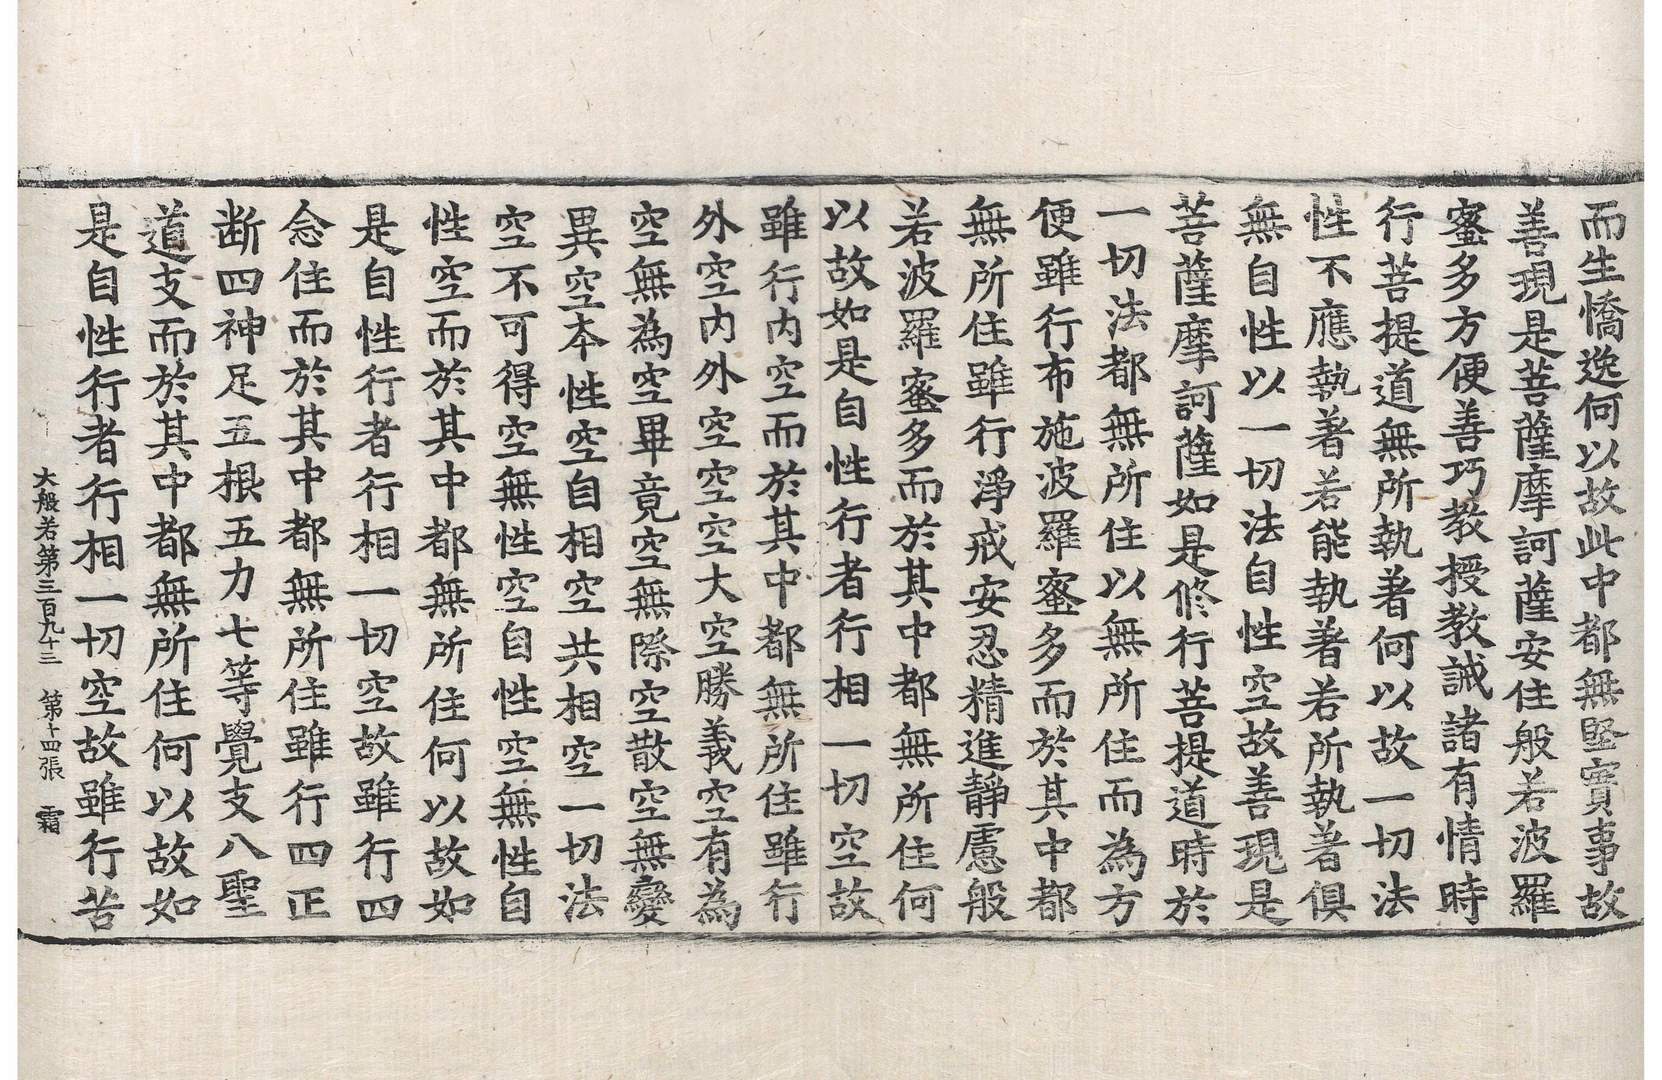 而生憍逸何以故此中都無堅實事故
善現是菩薩摩訶薩安住般若波羅
蜜多方便善巧教授教誡諸有情時
行菩提道無所執著何以故一切法
性不應執著若能執著若所執著俱
無自性以一切法自性空故善現是
菩薩摩訶薩如是修行菩提道時於
一切法都無所住以無所住而為方
便雖行布施波羅蜜多而於其中都
無所住雖行淨戒安忍精進靜慮般
若波羅蜜多而於其中都無所住何
以故如是自性行者行相一切空故
雖行內空而於其中都無所住雖行
外空內外空空空大空勝義空有為
空無為空畢竟空無際空散空無變
異空本性空自相空共相空一切法
空不可得空無性空自性空無性自
性空而於其中都無所住何以故如
是自性行者行相一切空故雖行四
念住而於其中都無所住雖行四正
断四神足五根五力七等覺支八聖
道支而於其中都無所住何以故如
是自性行者行相一切空故雖行苦
大般若第三百九十三 第十四張 霜